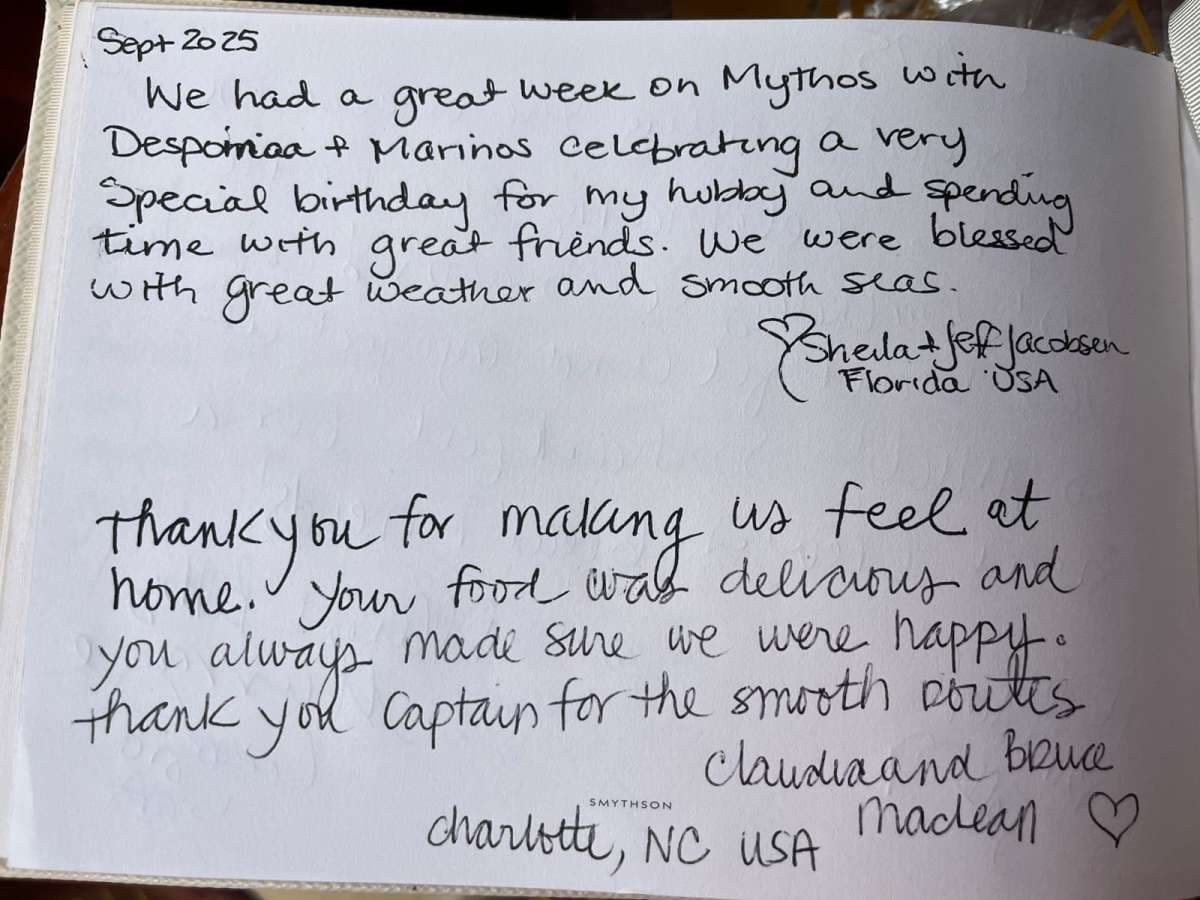 Sept 2025
We had a great week on Mythos with
& Marinos celebrating a very
special birthday for my hubby and spending
time with great friends. We were blessed
with great weather and smooth seas.
Sheila + Jeff Jacobsen
Florida USA
thank you for making us feel at
home. Your food was delicious and
you always made sure we were happy.
thank you Captain for the smooth routes
Claudia and Bruce
Maclean ♡
SMYTHSON
charlotte, NC USA